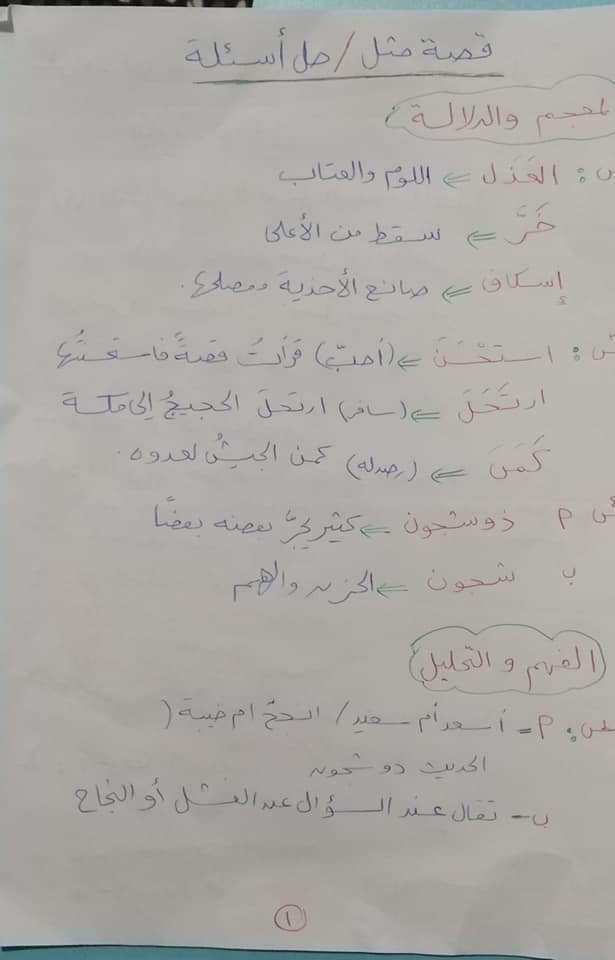 قصة مثل / حل أسئلة
المعجم والدلالة
س: العَذَل ⇐ اللوم والعتاب
خَرَّ ⇐ سقط من الأعلى
إسكاف ⇐ صانع الأحذية ومصلحها.
س: استَحْسَنَ ⇐ (أحبّ) قرأتُ قصةً فاستحسنتُها
ارتَحَلَ ⇐ (سافر) ارتحلَ الحجيجُ إلى مكة
كَمَنَ ⇐ (رصد له) كمن الجيشُ لعدوه.
س م ذو شجون ⇐ كثير يجرُّ بعضه بعضًا
ب شجون ⇐ الحزن والهم
الفهم والتحليل
س: م - أسعد أم سعيد / انجحٌ ام خيبة (
الحديث ذو شجون
ب - تقال عند السؤال عن الفشل أو النجاح
١